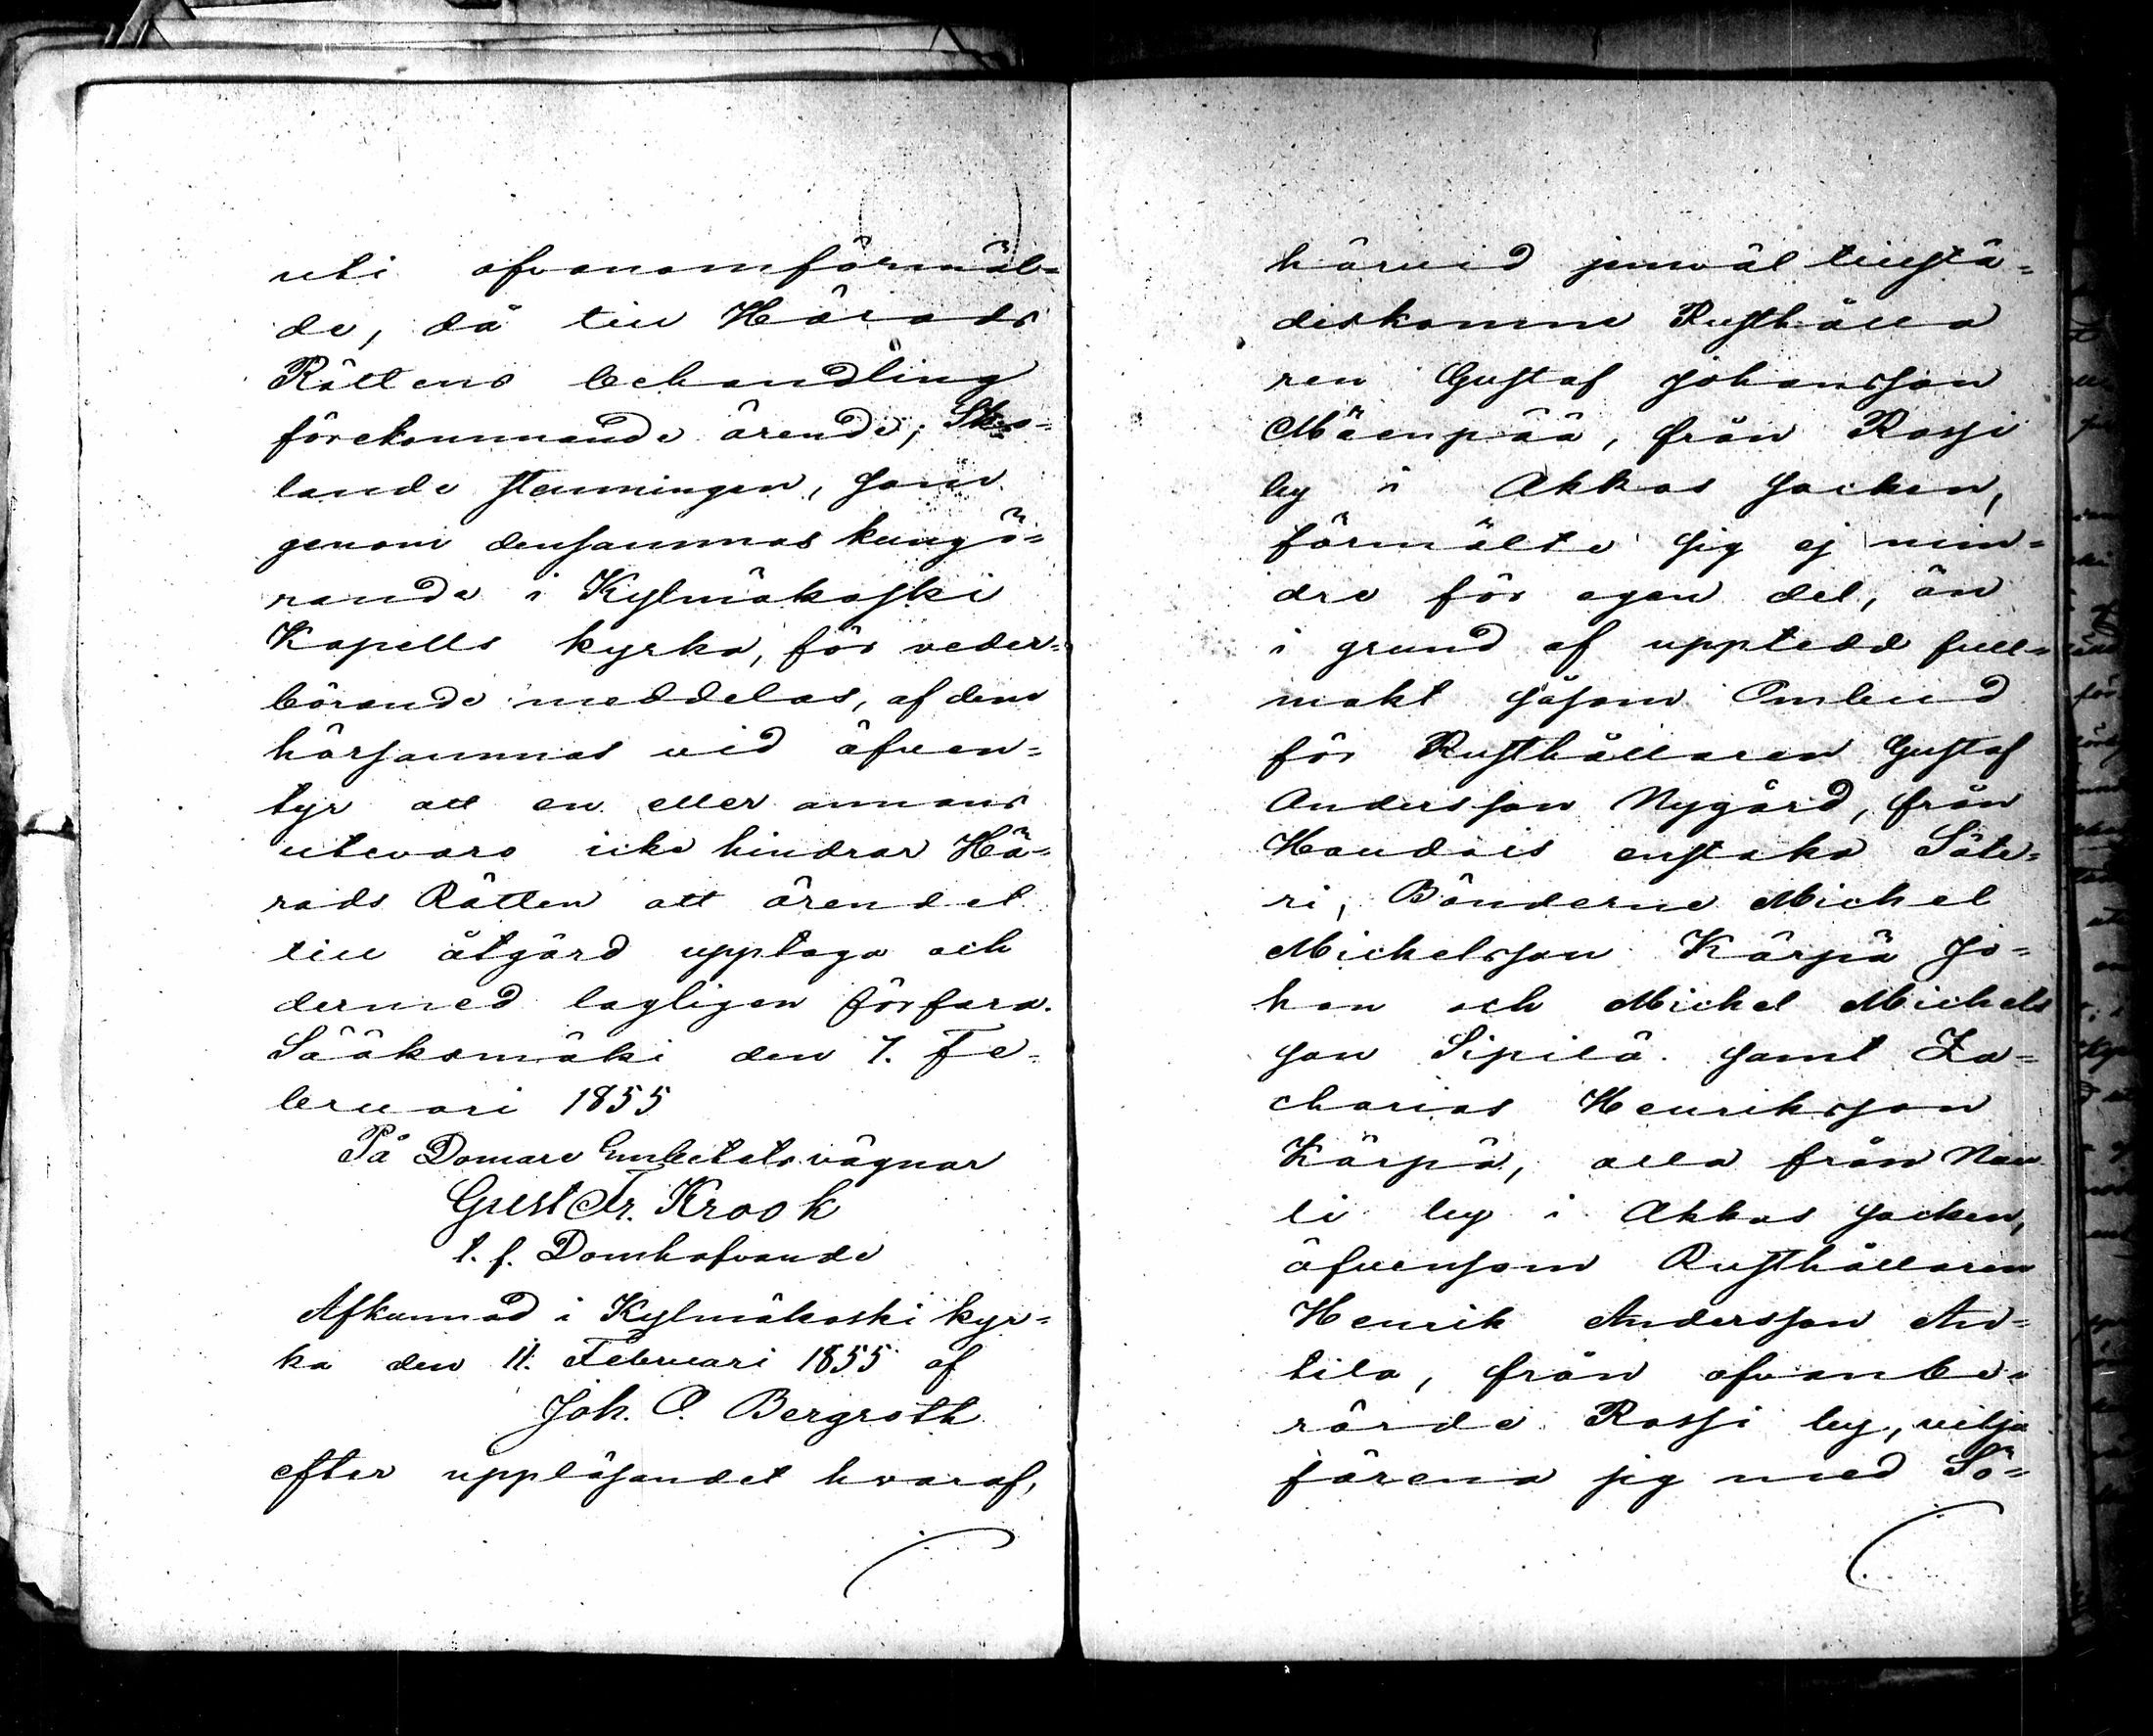 uti ofvanomförmäl=
de, då till Härads
Rättens behandling
förekommande ärende; Sko=
lande stemningen, som
genom densammas kungö=
rande i Kylmäkoski
Kapells kyrka, för veder=
börande meddelas, af dem
hörsammas vid äfven=
tyr att en eller annans
utevaro icke hindrar Hä=
rads Rätten att ärendet
till åtgärd upptaga och
dermed lagligen förfara.
Sääksmäki den 7. Fe=
bruari 1855
På Domare Embetets vägnar
Gust Fr. Krook
t. f. Domhafvande
Afkunnad i Kylmäkoski kyr=
ka den 11. Februari 1855 af
Joh. O. Bergroth
efter uppläsandet hvaraf,
härvid jemväl tillstä=
deskomne Rusthålla
ren Gustaf Johansson
Mäenpää, från Rossi
by i Akkas socken,
förmälte sig ej min=
dre för egen del, än
i grund af uppted full=
makt såsom Ombud
för Rusthållaren Gustaf
Andersson Nygård, från
Haudois enstaka Säte=
ri, Bönderne Michel
Michelsson Kärpä Jo=
han och Michel Michels
son Sipilä samt Za=
charias Henriksson
Kärpä, alla från Nau
li by i Akkas socken,
äfvensom Rusthållaren
Henrik Andersson An=
tila, från ofvanbe=
rörde Rossi by, vilja
förena sig med Sö=